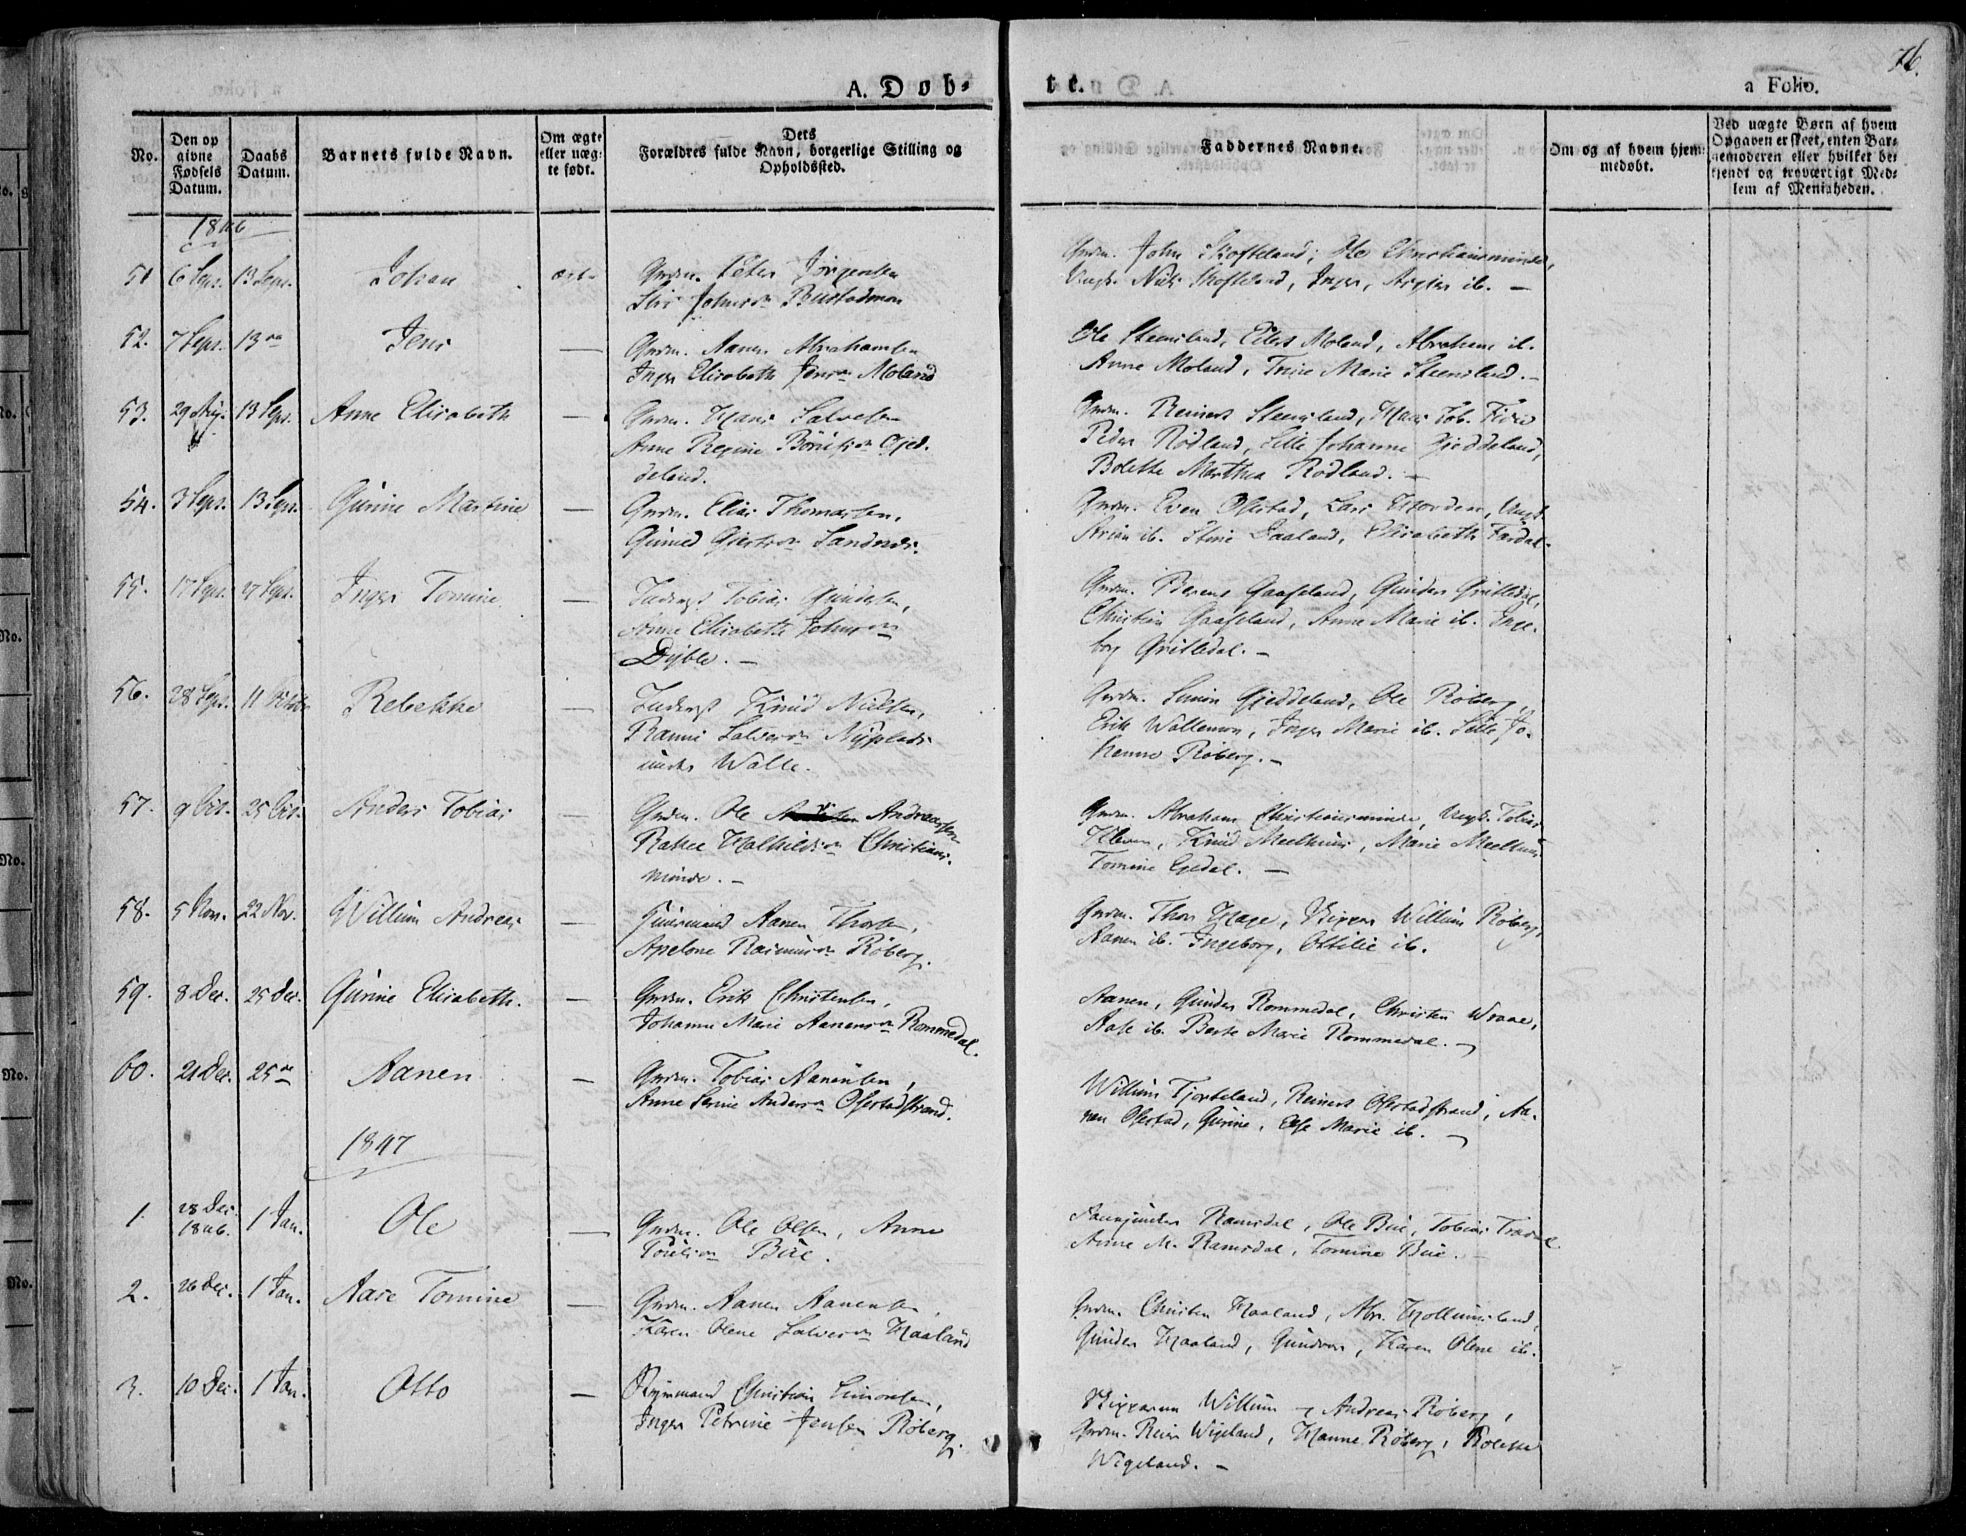 76.
A. Døb-
te.
a Folio.
No.
Den op
givne
Fødsels
Datum.
Daabs
Datum.
Barnets fulde Navn.
Om ægte
eller uæg-
te født.
Dets
Forældres fulde Navn, borgerlige Stilling og
Opholdssted.
Faddernes Navne.
Om og af hvem hjem-
medøbt.
Ved uægte Børn af hvem
Opgaven er skeet, enten Bar-
nemoderen eller hvilket be-
kjendt og troværdigt Med-
lem af Menigheden.
1846
51 6 Sept. 13 Sept. Johan ægt- Grdm. Peter Jörgensen
Johnsen Bustadmoen
Grdm. John Skofteland, Ole Christiansminde,
Ungk. Niels Skofteland, Inger, ib. -
52. 7 Sept. 13 Jens — Grdm. Aanen Abrahamsen
Inger Elisabeth Jens Moland
Ole Steensland, Eilert Moland, Abraham ib.
Anne Moland, Trine Marie Steensland. -
53. 29 Aug. 13 Sept. Anne Elisabeth — Grdm. Hans Salvesen
Anne Regine Gjed-
deland.
Grdm. Reinert Steensland, Hans Tob.
Peder Rödland, Lille Johanne Gjeddeland,
Bolette Marthea Rödland. -
54. 3 Sept. 13 Sept. Gurine Martine — Grdm. Elias Thomassen,
Gunild Sandnes.
Grdm. Even Ofstad, Lars
ib. Stine Daaland, Elisabeth Fardal.
55. 17 Sept. 27 Sept. Inger Tomine — Inderst Tobias Gundersen,
Anne Elisabeth Johns
Dyble. -
Grdm. Berent Gaaseland, Gunder Qvitledal,
Christian Gaaseland, Anne Marie ib. Inge-
borg Qvitledal. -
56. 28 Sept. 11 Rebekke — Inderst Knud Nielsen,
Salves Nyplads
under Walle.
Grdm. Simon Gjeddeland, Ole Röberg,
Erik Wallemoen, Inger Marie ib. Lille Jo-
hanne Röberg. -
57. 9 Oct. 25 Oct. Anders Tobias — Grdm. Ole Andreassen
Christians-
minde. -
Grdm. Abraham Christiansminde, Ungk. Tobias
Kleven, Knud Meelhuus, Marie Meelhuus
Tomine Egedal. -
58. 5 Nov. 22 Nov. Willum Andreas — Huusmand Aanen Thorsen,
Apelone Rasmus Röberg.
Grdm. Thor Hage, Skipper Willum Röberg,
Aanen ib. Ingeborg, Ottilie ib.
59. 8 Dec. 25 Dec. Gurine Elisabeth. — Grdm. Erik Christensen,
Johanne Marie Aanens Rommedal.
Aanen, Gunder Rommedal, Christen Wraae,
Aase ib. Berte Marie Rommedal. -
60. 21 Dec. 25 Aanen — Grdm. Tobias Aanensen,
Anne Serine Anders Ofstadstrand.
Willum Tjorteland, Reinert Ofstadstrand, Aa-
nen Ofstad, Gurine, Else Marie ib. -
1847
1. 28 Dec.
1846. 1 Jan. Ole — Grdm. Ole Olsen, Anne
Bue.
Ramsdal, Ole Bue, Tobias
Anne M. Ramsdal, Tomine Bue. -
2. 26 Dec. 1 Jan. Aase Tomine — Grdm. Aanen Aanensen,
Karen Olene Salves Haaland
Grdm. Christen Haaland, Abr. Hollumsland,
Gunder Haaland, Gundvor, Karen Olene ib.
3. 10 Dec. 1 Jan. Otto — Styrmand Christian Simonsen,
Inger Petrine Jensen Röberg.
Skipperne Willum og Andreas Röberg,
Grdm. Reier Wigeland, Hanne Röberg,
Wigeland. -
No.
No.
No.
No.
No.